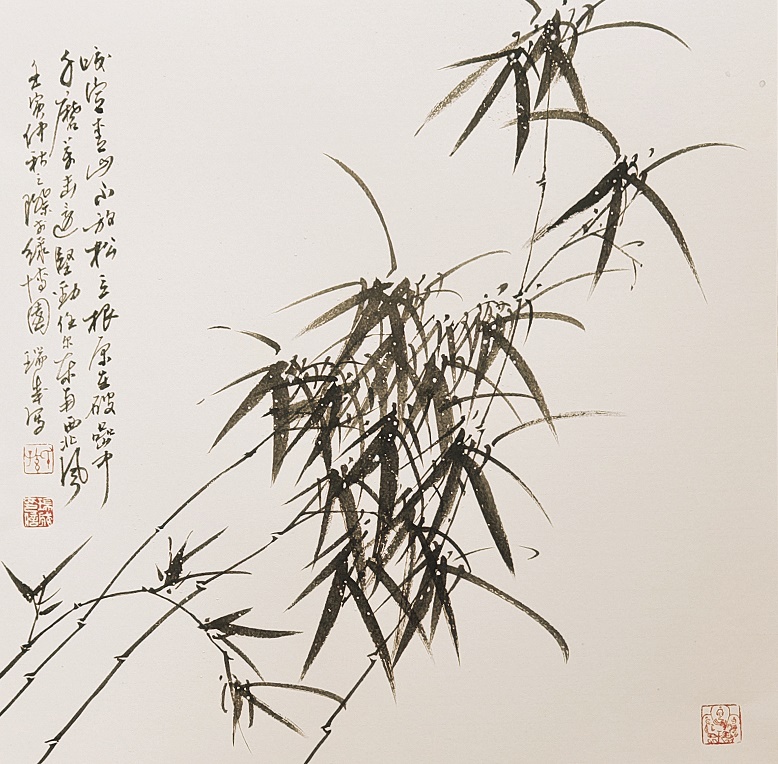 咬定青山不放松立根原在破岩中
千磨万击还坚劲任尔东南西北风
壬寅仲秋之際于綠博園 瑞写